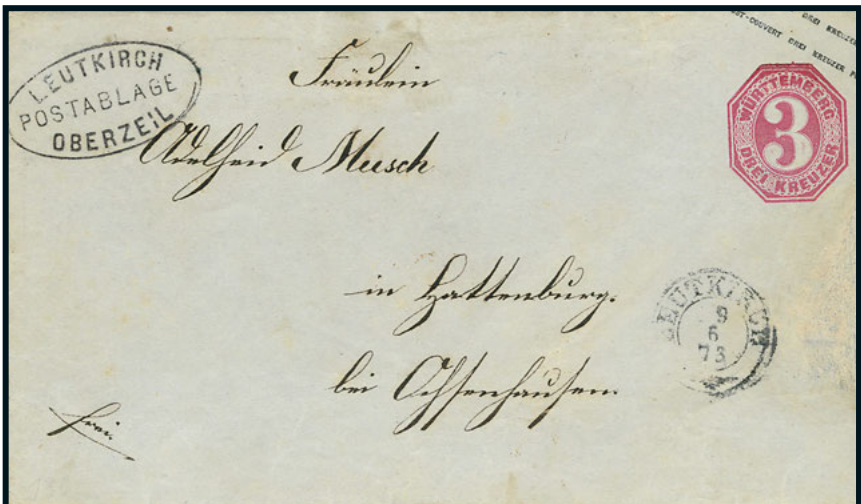 LEUTKIRCH
POSTABLAGE
OBERZEIL
DREI KREUZER
COUVERT DREI KREUZER
WÜRTTEMBERG
3
DREI KREUZER
Fräulein
Adelheid Musch
in Hattenburg.
bei Ochsenhausen.
LEUTKIRCH
9
6
73
frei